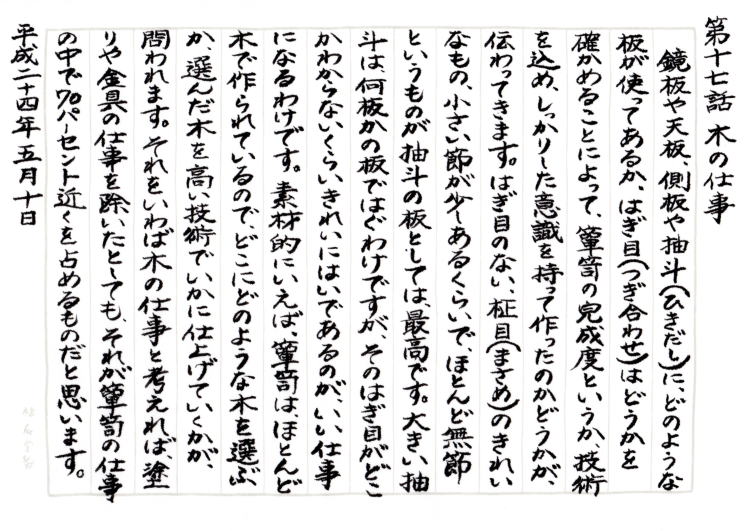 第十七話 木の仕事
鏡板や天板、側板や抽斗(ひきだし)に、どのような
板が使ってあるか、はぎ目(つぎ合わせ)はどうかを
確かめることによって、簞笥の完成度というか、技術
を込め、しっかりした意識を持って作ったのかどうかが、
伝わってきます。はぎ目のない、柾目(まさめ)のきれい
なもの、小さい節が少しあるくらいで、ほとんど無節
というものが抽斗の板としては、最高です。大きい抽
斗は、何板かの板ではぐわけですが、そのはぎ目がどこ
かわからないくらい、きれいにはいであるのが、いい仕事
になるわけです。素材的にいえば、簞笥は、ほとんど
木で作られているので、どこにどのような木を選ぶ
か、選んだ木を高い技術でいかに仕上げていくかが、
問われます。それをいわば木の仕事と考えれば、塗
りや金具の仕事を除いたとしても、それが簞笥の仕事
の中で70パーセント近くを占めるものだと思います。
平成二十四年五月十日